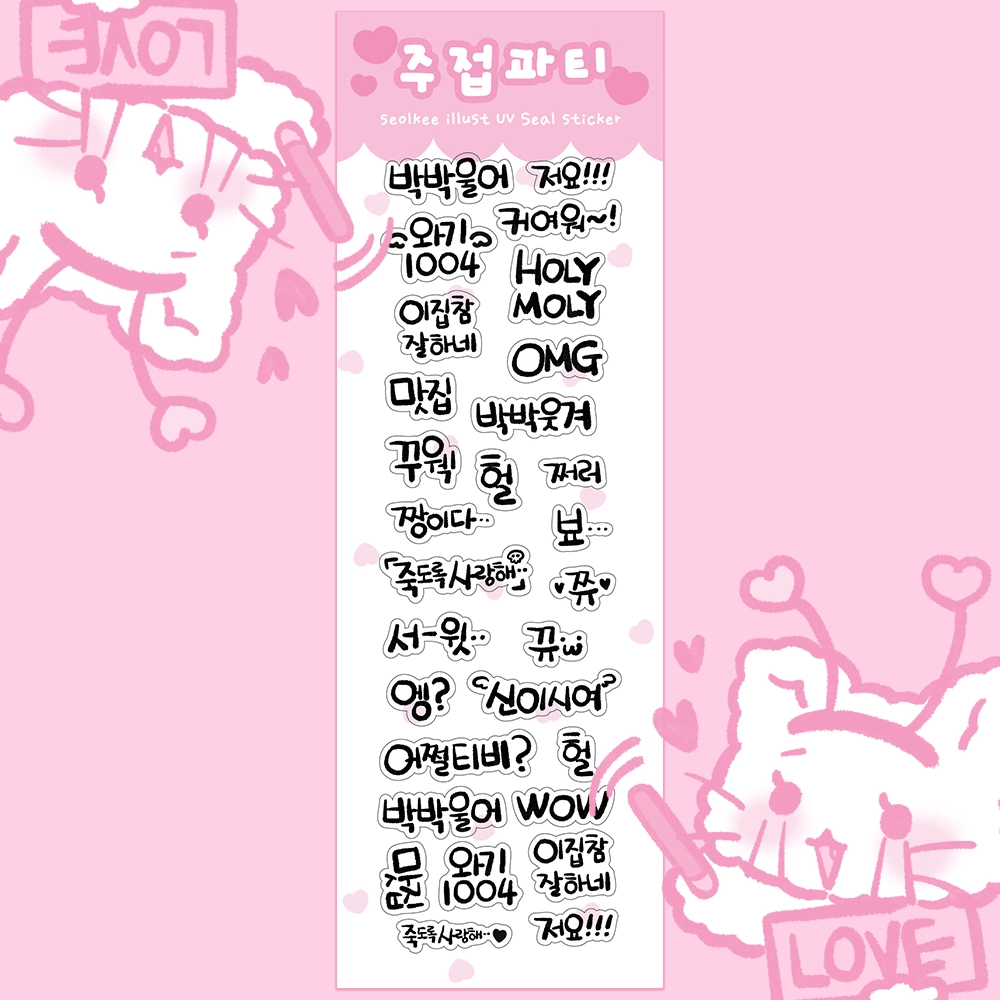 LOVE
주접파티
seolkee illust UV Seal sticker
박박울어
저요!!!
와기
1004
귀여워~!
HOLY
MOLY
이집참
잘하네
OMG
맛집
박박웃겨
꾸웩
헐
쩌러
짱이다..
뵤...
「죽도록사랑해..」
쮸
서-윗..
뀨
엥?
신이시여
어쩔티비?
헐
박박울어
WOW
와기
1004
이집참
잘하네
죽도록사랑해..
저요!!!
LOVE